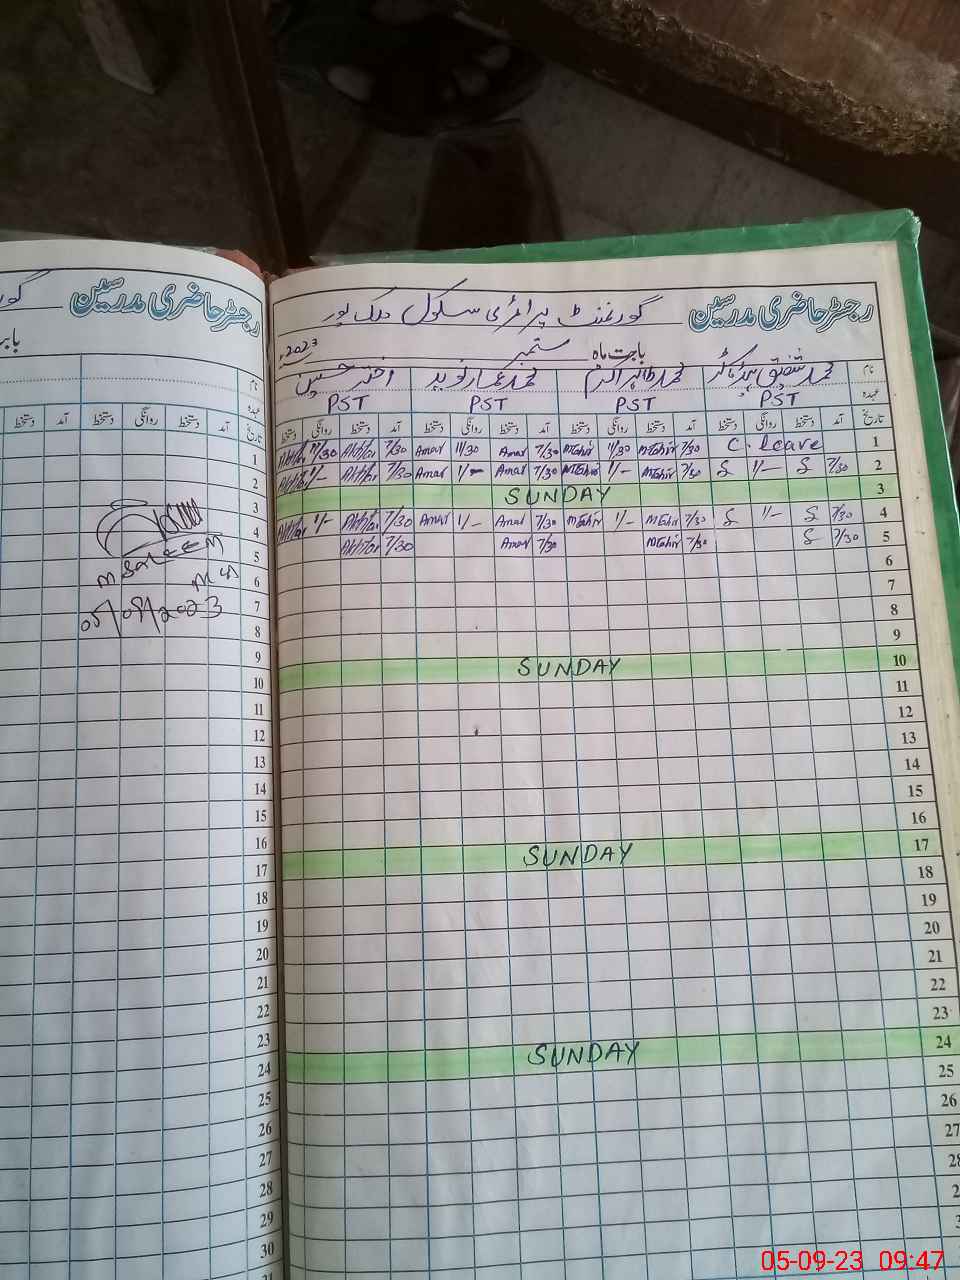 رجسٹر حاضری مدرسین گورنمنٹ پرائمری سکول ملک پور
بابت ماہ ستمبر 2023ء
نام محمد شفیق ہیڈ ماسٹر محمد طاہر اکرم محمد عمار نوید اختر حسین
عہدہ PST PST PST PST
تاریخ آمد دستخط روانگی دستخط آمد دستخط روانگی دستخط آمد دستخط روانگی دستخط آمد دستخط روانگی دستخط
1 C. leave 7/30 MTahir 11/30 MTahir 7/30 Amar 11/30 Amar 7/30 11/30
2 7/30 S 1/- S 7/30 MTahir 1/- MTahir 7/30 Amar 1/- Amar 7/30 1/-
3 SUNDAY
4 7/30 S 1/- S 7/30 MTahir 1/- MTahir 7/30 Amar 1/- Amar 7/30 1/-
5 7/30 S 7/30 MTahir 7/30 Amar 7/30
6
7
8
9
10 SUNDAY
11
12
13
14
15
16
17 SUNDAY
18
19
20
21
22
23
24 SUNDAY
25
26
27
28
رجسٹر حاضری مدرسین
نام
عہدہ
تاریخ آمد دستخط روانگی دستخط آمد دستخط
1
2
3
4
5
M SALEEM
6
7
05/09/2023
8
9
10
11
12
13
14
15
16
17
18
19
20
21
22
23
24
25
26
27
28
29
30
31
05-09-23 09:47